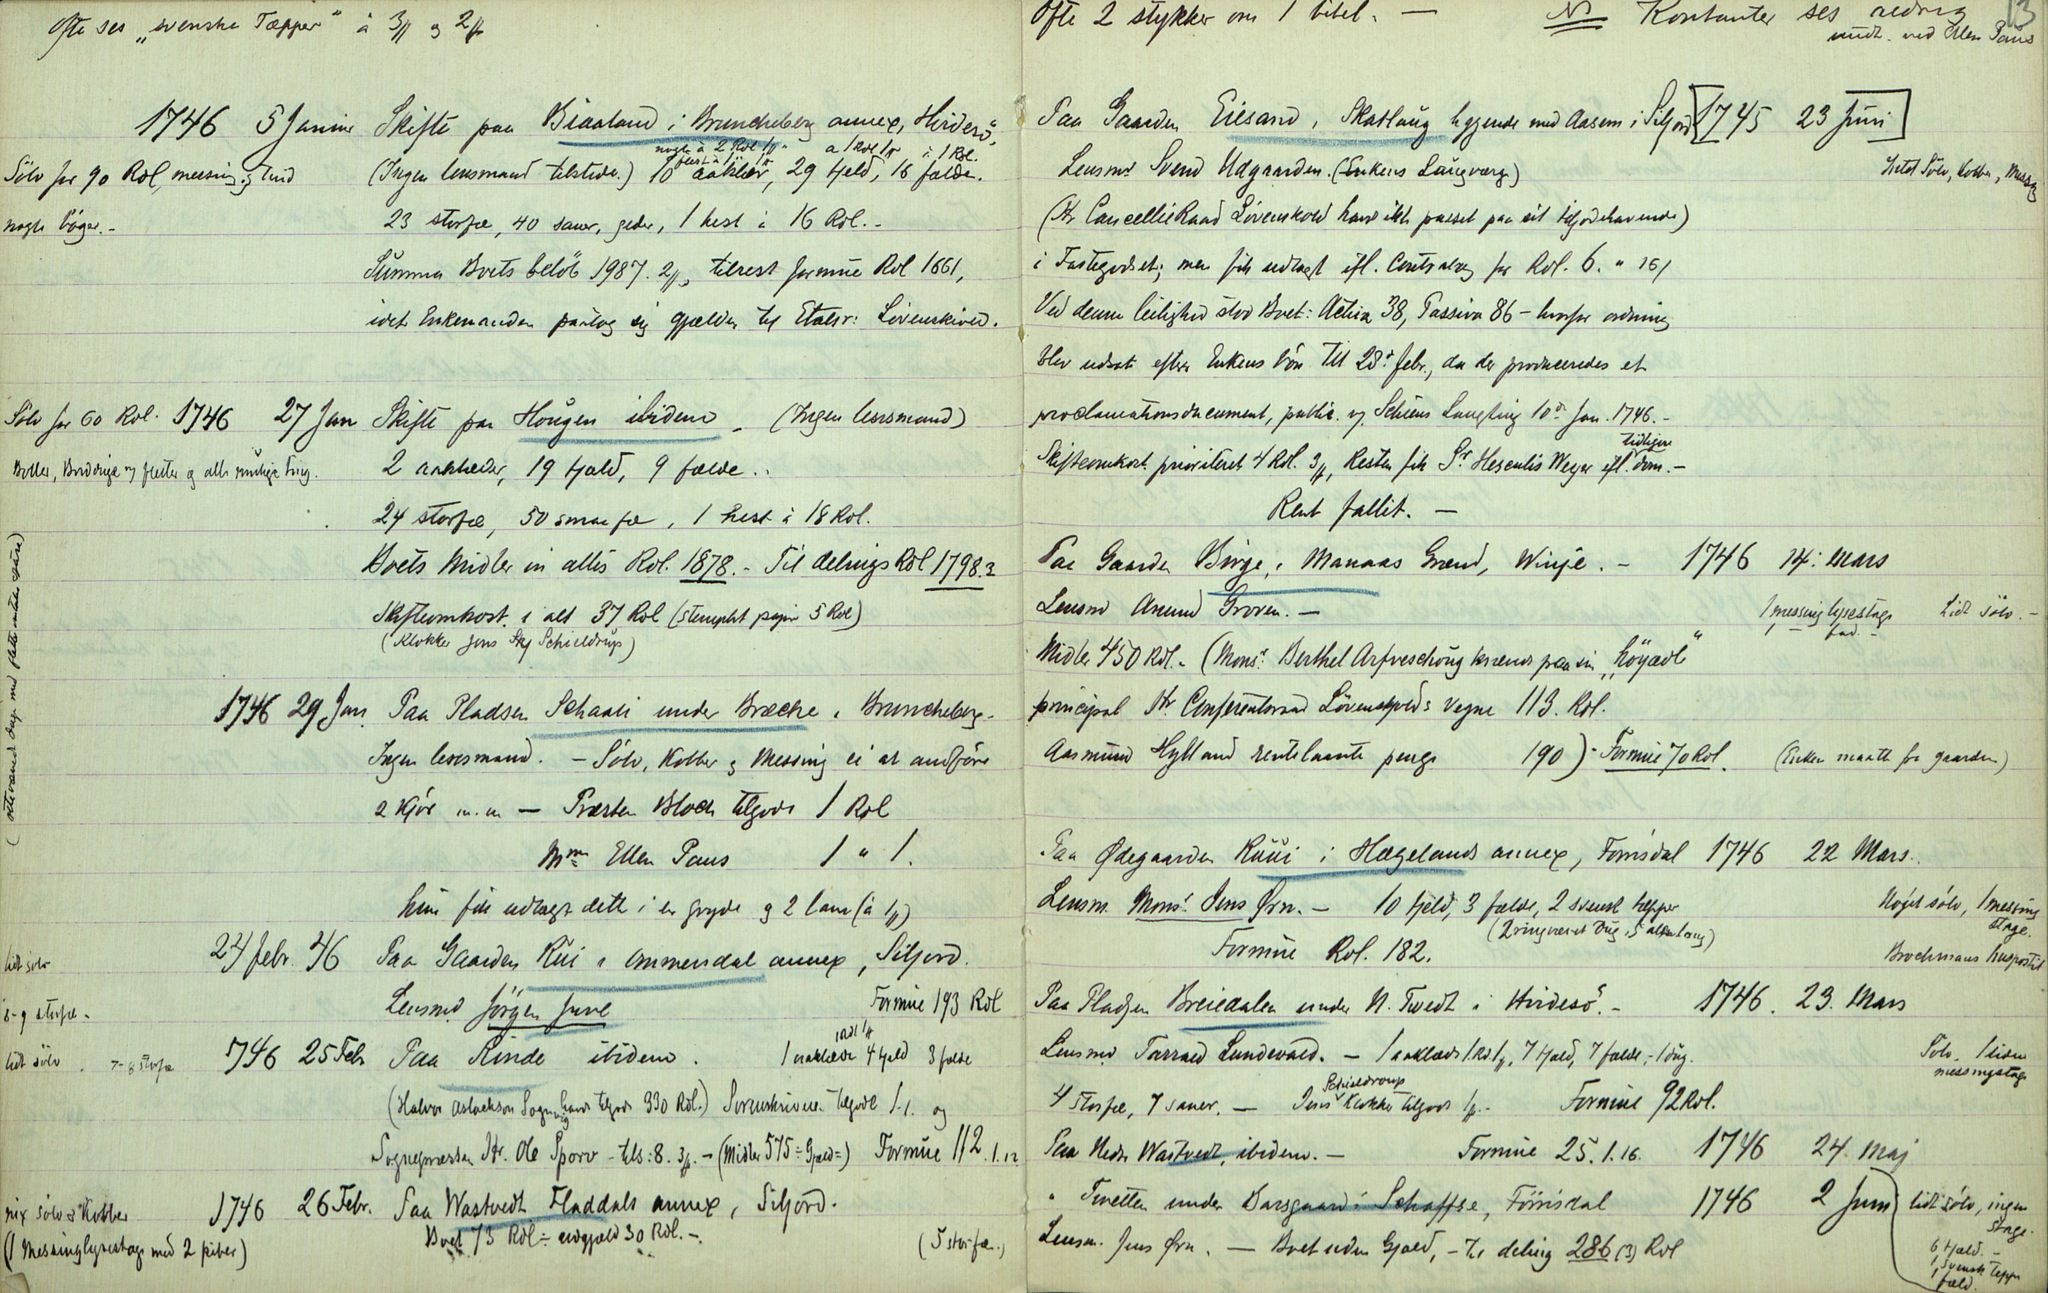 Ofte ses „svenske Tæpper" à 3 og 2
1746 5 Januar Skifte paa Biaaland i Bruncheberg annex, Hvidesö
nogle à 2 Rdl à 1 Rdl à 1 Rdl.
Sölv for 90 Rdl, messing og tind
(Ingen lensmand tilstede.) 10 aaklær, 29 fjeld, 16 fælde.
nogle bøger.-
23 storfæ, 40 sauer, geder, 1 hest à 16 Rdl.-
Summa Boets belöb 1987. 2, tilrest formue Rdl 1661,
idet Enkemanden paatog sig gjælden til Etatsr: Lövenskiold.
Sölv for 60 Rdl. 1746 27 Jan Skifte paa Hougen ibidem (Ingen lensmand)
2 aaklæder, 19 fjeld, 9 fælde.
24 storfæ, 50 smaafæ, 1 hest à 18 Rdl.
Boets Midler in alles Rdl. 1878.- Til delings Rdl 1798.3
Skifteomkost. i alt 37 Rdl (stemplet papir 5 Rdl)
(Klokker Jens Schieldrup)
1746 29 Jan. Paa Pladsen Schaali under Bræcke i Bruncheberg-
Ingen lensmand. - Sölv, Kobber og Messing ei at anföre
2 kjör m.m - Præsten Bloch tilgode 1 Rdl
Mme Ellen Paus 1 " 1.
hun fik udlagt dette i en gryde og 2 lam (à 1)
lidt sölv
24 febr. 46 Paa Gaarden Rui i Ammersdal annex, Siljord.
8-9 storfæ-
Lensmd Jörgen Juvel Formue 193 Rdl
lidt sölv 7-8 storfæ 1746 25 Feb Paa Rinde ibidem. 1 aaklæde 4 fjeld 3 fælde
(Halvor Aslachson tilgode 330 Rdl.) Sorenskriveren tilgode 1.1. og
Sognepræsten Hr. Ole Sporo - tils: 8. 3 - (Midler 575 ÷ Gjæld=) Formue 112.1.12
nix sölv & Kobber 1746 26 Febr. Paa Wastvedt Fladdals annex, Siljord.
(1 Messinglysestage med 2 piber)
Boet 73 Rdl ÷ udgjæld 30 Rdl.- (5 storfæ.)
Ofte 2 stykker om 1 bibel. - NB Kontanter ses aldrig 13
undt. ved Ellen Paus
Paa Gaarden Eiesand, Skatlaug liggende med Aasem i Siljord 1745 23 Juni
Lensmd Svend Udgaarden. (Enkens Laugværge)
Lidt Sölv, Kobber, Messing
(Hr CancelliRaad Lövenskiold havde ikke passet paa sit tilgodehavende)
i Fastegodset; men fik udlagt efl. Contraleg for Rdl. 6. " 16/
Ved denne leilighed stod Boet: Activa 38, Passiva 86 - hvorfor ordning
blev udsat efter Enkens bön til 28de febr., da der produceredes et
proclamationsdocument, public. og Schiens Langting 10de Jan. 1746.-
Skifteomkost. prioriteret 4 Rdl. 3, Resten fik Sr Herculis Weyer efl. tidligere dom.-
Rent fallit. -
Paa Gaarden Börge, i Manaas Grend, Winje.- 1746 14: Mars
Lensmd Anund Groven.-
1 messing lysestage Lidt sölv.-
1 fad.-
Midler 450 Rdl.- (Monsr: Berthel Arfveschoug krævede paa sin „höyædl"
principal Hr. Conferentsraad Lövenskiolds vegne 113. Rdl.
Aasmund Hylland rentelaante penge 190) - Formue 70 Rdl. (Enken maatte fra gaarden)
Paa Ødegaarden Ruui i Hægelands annex, Fomisdal 1746 22 Mars.
Lensm. Monsr: Jens Örn.- 10 fjeld, 3 fælde, 2 svensk tæpper
Noget sölv, 1 messing stage.
Formue Rdl. 182.
Brochmans huspostil
Paa Pladsen Breiedalen under N. Tvedt i Hvidesö.- 1746. 23. Mars
Lensmd Tarrald Lundevald. - 1 aaklæde 1 Rdl, 7 fjeld, 7 fælde, 1 dug.
Sölv, 1 liden messingstage
4 storfæ, 7 sauer. - Jens Schieldroup Klokker tilgode 1.- Formue 92 Rdl.
Paa Nedre Wastvedt, ibidem.- Formue 25. 1. 16. 1746 24. Maj
" Tveitten under Barsgaard i Schaffse, Fomisdal 1746 2 Juni
lidt sölv, ingen stage.
Lensm. Jens Örn. - Boet uden Gjæld, - til deling 286 (3) Rdl
6 fjeld.-
1 svensk teppe
1 fæld.